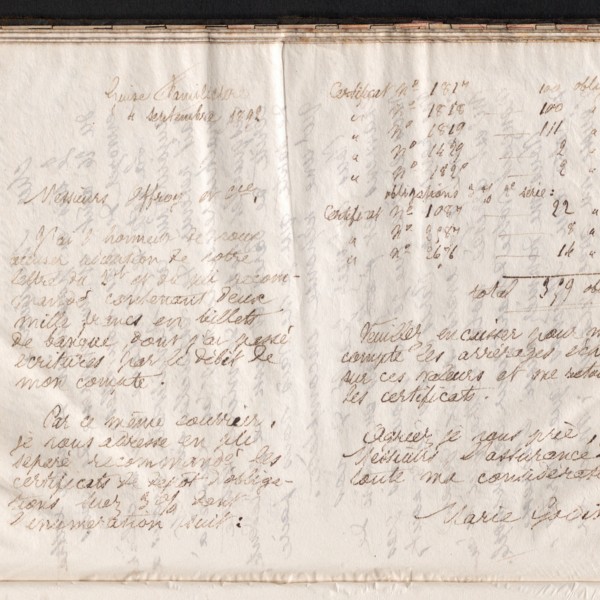 Guise Familistère
4 Septembre 1892
Messieurs Offroy et Cie,
J'ai l'honneur de vous
accuser réception de votre
lettre du 2 et du pli recom-
mandé contenant deux
mille francs en billets
de banque dont j'ai passé
écritures par le débit de
mon compte.
Par ce même courrier,
je vous adresse en pli
séparé recommandé les
certificats de dépôt d'obliga-
tions Suez 3 % dont
l'énumération suit:
Certificat No 1817 — 100 obli
" No 1818 — 100 "
" No 1819 — 111 "
" No — 2 "
" No — 2
obligations 2e série:
Certificat No 1087 — 22 "
" No — 8 "
" No — 14 "
total 359 ob
Veuillez encaisser pour m
compte les arrérages
sur ces valeurs et me
les certificats.
Agréez je vous prie,
Messieurs l'assurance
toute ma considérat
Marie